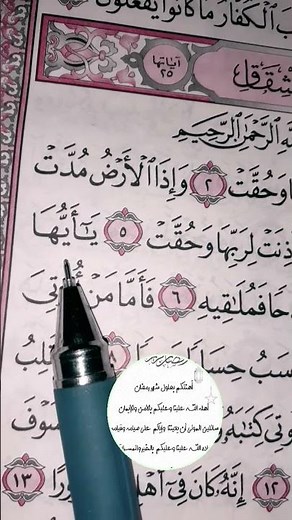 بَ ٱلْكُفَّارُ مَا كَانُوا۟ يَفْعَلُونَ
آياتها ٢٥
شقاق
ٱللَّهِ ٱلرَّحْمَـٰنِ ٱلرَّحِيمِ
وَحُقَّتْ ٢ وَإِذَا ٱلْأَرْضُ مُدَّتْ
ذِنَتْ لِرَبِّهَا وَحُقَّتْ ٥ يَـٰٓأَيُّهَا
حًا فَمُلَـٰقِيهِ ٦ فَأَمَّا مَنْ أُوتِىَ
سَبُ حِسَابًا
وتِىَ كِتَـٰبَهُۥ
وْفَ
١٢ إِنَّهُۥ كَانَ فِىٓ أَهْلِهِۦ ورًا ١٣
أهنئكم بحلول شهر رمضان
أهله الله علينا وعليكم بالأمن والإيمان
سائلين المولى أن يعيننا وإياكم على صيامه وقيامه
الله علينا وعليكم بالخير والمسرات